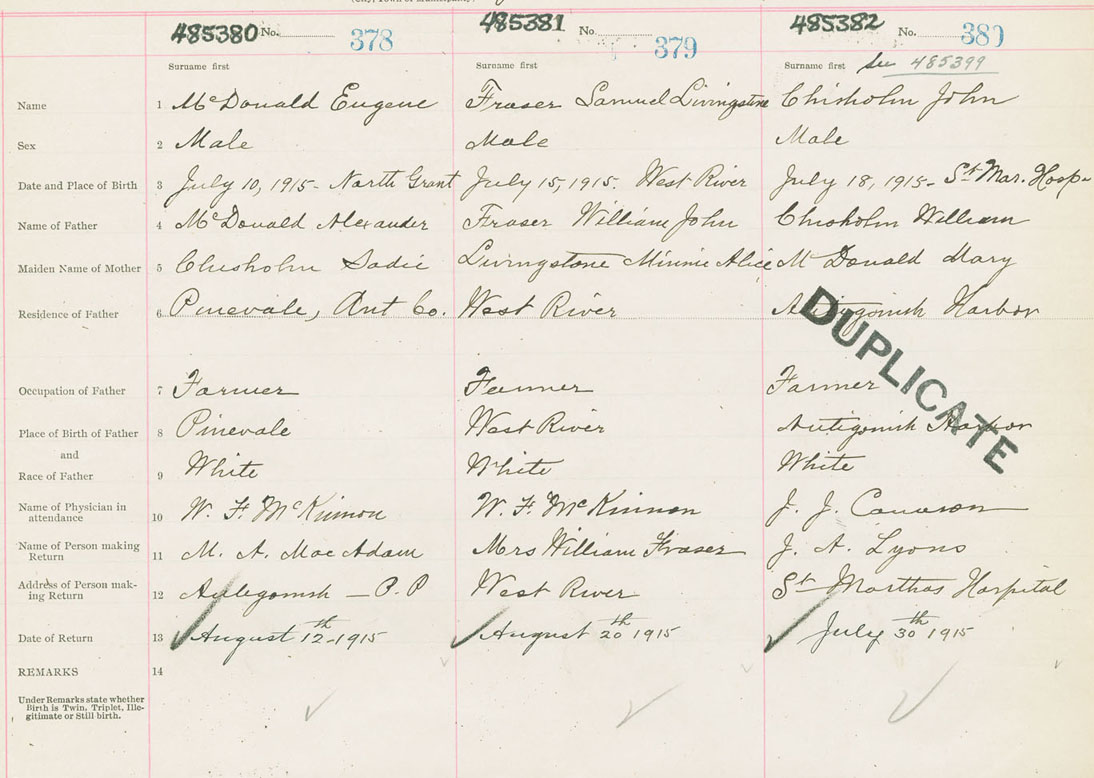 485380 No. 378 485381 No. 379 485382 No. 380
Surname first Surname first see 485399
Name 1 McDonald Eugene Fraser Samuel Livingstone Chisholm John
Sex 2 Male Male Male
Date and Place of Birth 3 July 10, 1915 - North Grant July 15, 1915. West River July 18, 1915 - St Mar. Hosp.
Name of Father 4 McDonald Alexander Fraser William John Chisholm William
Maiden Name of Mother 5 Chisholm Sadie Livingstone Minnie Alice McDonald Mary
Residence of Father 6 Pinevale, Ant Co. West River Antigonish Harbor
DUPLICATE
Occupation of Father 7 Farmer Farmer Farmer
Place of Birth of Father 8 Pinevale West River Antigonish Harbor
and
Race of Father 9 White White White
Name of Physician in
attendance 10 W. F. McKinnon W. F. McKinnon J. J. Cameron
Name of Person making
Return 11 M. A. MacAdam Mrs William Fraser J. A. Lyons
Address of Person mak-
ing Return 12 Antigonish - P.P West River St Marthas Hospital
Date of Return 13 August 12th - 1915 August 20th 1915 July 30th 1915
REMARKS 14
Under Remarks state whether
Birth is Twin, Triplet, Ille-
gitimate or Still birth.